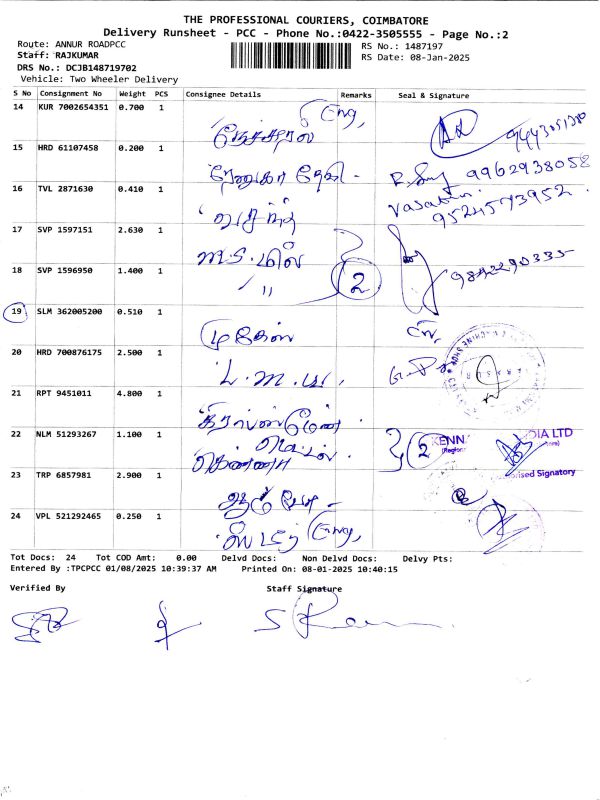 THE PROFESSIONAL COURIERS, COIMBATORE
Delivery Runsheet - PCC - Phone No.:0422-3505555 - Page No.:2
Route: ANNUR ROADPCC
RS No.: 1487197
Staff: RAJKUMAR
RS Date: 08-Jan-2025
DRS No.: DCJB148719702
Vehicle: Two Wheeler Delivery
S No Consignment No Weight PCS Consignee Details Remarks Seal & Signature
14 KUR 7002654351 0.700 1 Eng,
15 HRD 61107458 0.200 1 ரேணுகா தேவி - 9962938058
16 TVL 2871630 0.410 1 வசந்த் Vasanth. 9524573952.
17 SVP 1597151 2.630 1 எம்.எஸ்.மில்
18 SVP 1596950 1.400 1 〃 2 9842290335
19 SLM 362005200 0.510 1 முகேஷ்
20 HRD 700876175 2.500 1 L.M.W.
21 RPT 9451011 4.800 1
22 NLM 51293267 1.100 1 கென்னா மெட்டல். 2 KENN DIA LTD
rised Signatory
23 TRP 6857981 2.900 1
24 VPL 521292465 0.250 1 Eng,
Tot Docs: 24 Tot COD Amt: 0.00 Delvd Docs: Non Delvd Docs: Delvy Pts:
Entered By :TPCPCC 01/08/2025 10:39:37 AM Printed On: 08-01-2025 10:40:15
Verified By Staff Signature